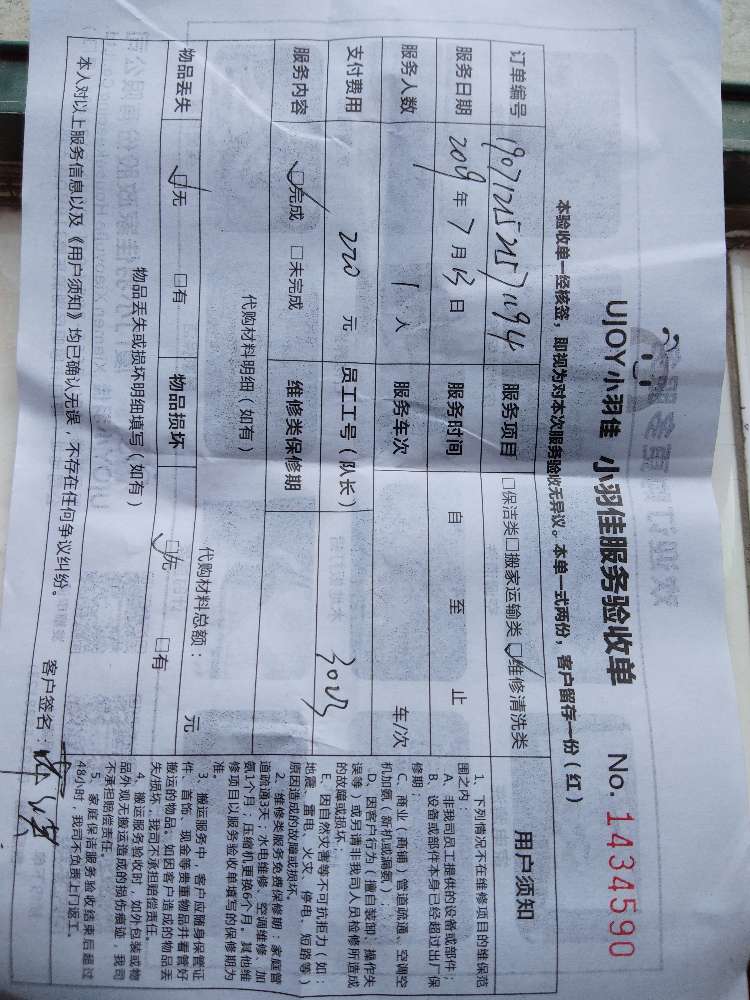 UJOY小羽佳 小羽佳服务验收单 No. 1434590
本验收单一经核签，即视为对本次服务验收无异议。本单一式两份，客户留存一份（红）
订单编号
服务项目 □保洁类□搬家运输类□维修清洗类
服务日期 2019年7月13日 服务时间 自 至 止
服务人数 1人 服务车次 车/次
支付费用 220 元 员工工号（队长）
服务内容 □完成 □未完成 维修类保修期
代购材料明细（如有） 代购材料总额： 元
物品丢失 □无 □有 物品损坏 □无 □有
物品丢失或损坏明细填写（如有）
本人对以上服务信息以及《用户须知》均已确认无误，不存在任何争议纠纷。 客户签名：
用户须知
1、下列情况不在维修项目的维保范
围之内：
A、非我司员工提供的设备或部件；
B、设备或部件本身已经超过出厂保
修期；
C、商业（商铺）管道疏通、空调空
机加氨（新机或漏氨）；
D、因客户行为（擅自装卸、操作失
误等，或另请非我司人员检修所造成
的故障或损坏；
E、因自然灾害等不可抗拒力（如：
地震、雷电、火灾、停电、短路等）
原因造成的故障或损坏。
2、维修类服务免费保修期：家庭管
道疏通3天；水电维修、空调维修、加
氨1个月；压缩机更换6个月。其他维
修项目以服务验收单填写的保修期为
准。
3、搬运服务中，客户应随身保管证
件、首饰、现金等贵重物品并看管好
搬运的物品；如因客户造成的物品丢
失/损坏，我司不承担赔偿责任。
4、搬运服务验收时，如外包装或物
品外观无搬运造成的损伤痕迹，我司
不承担赔偿责任。
5、家庭保洁服务验收结束后超过
48小时，我司不负责上门返工。